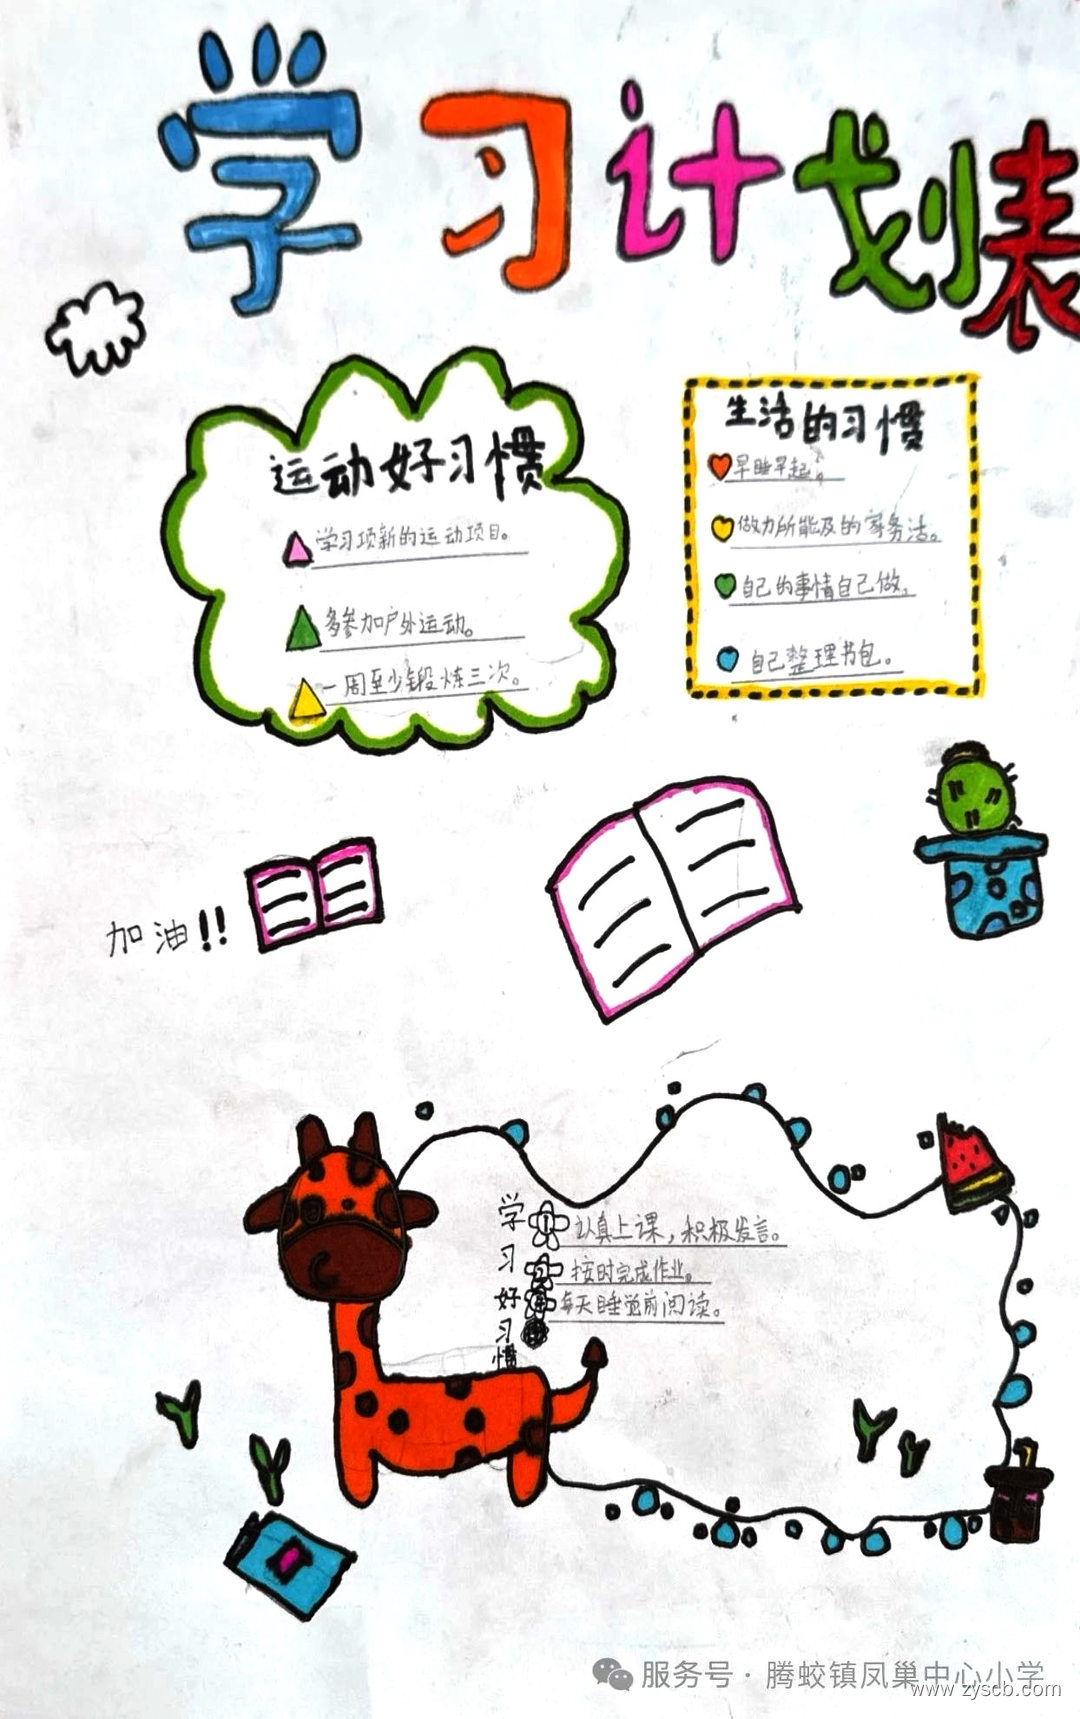 学习计划表
运动好习惯
学习项新的运动项目。
多参加户外运动。
一周至少锻炼三次。
生活的习惯
早睡早起。
做力所能及的家务活。
自己的事情自己做,
自己整理书包。
加油!!
学习好习惯
认真上课,积极发言。
按时完成作业。
每天睡觉前阅读。
服务号·腾蛟镇凤巢中心小学
www.zyscb.com